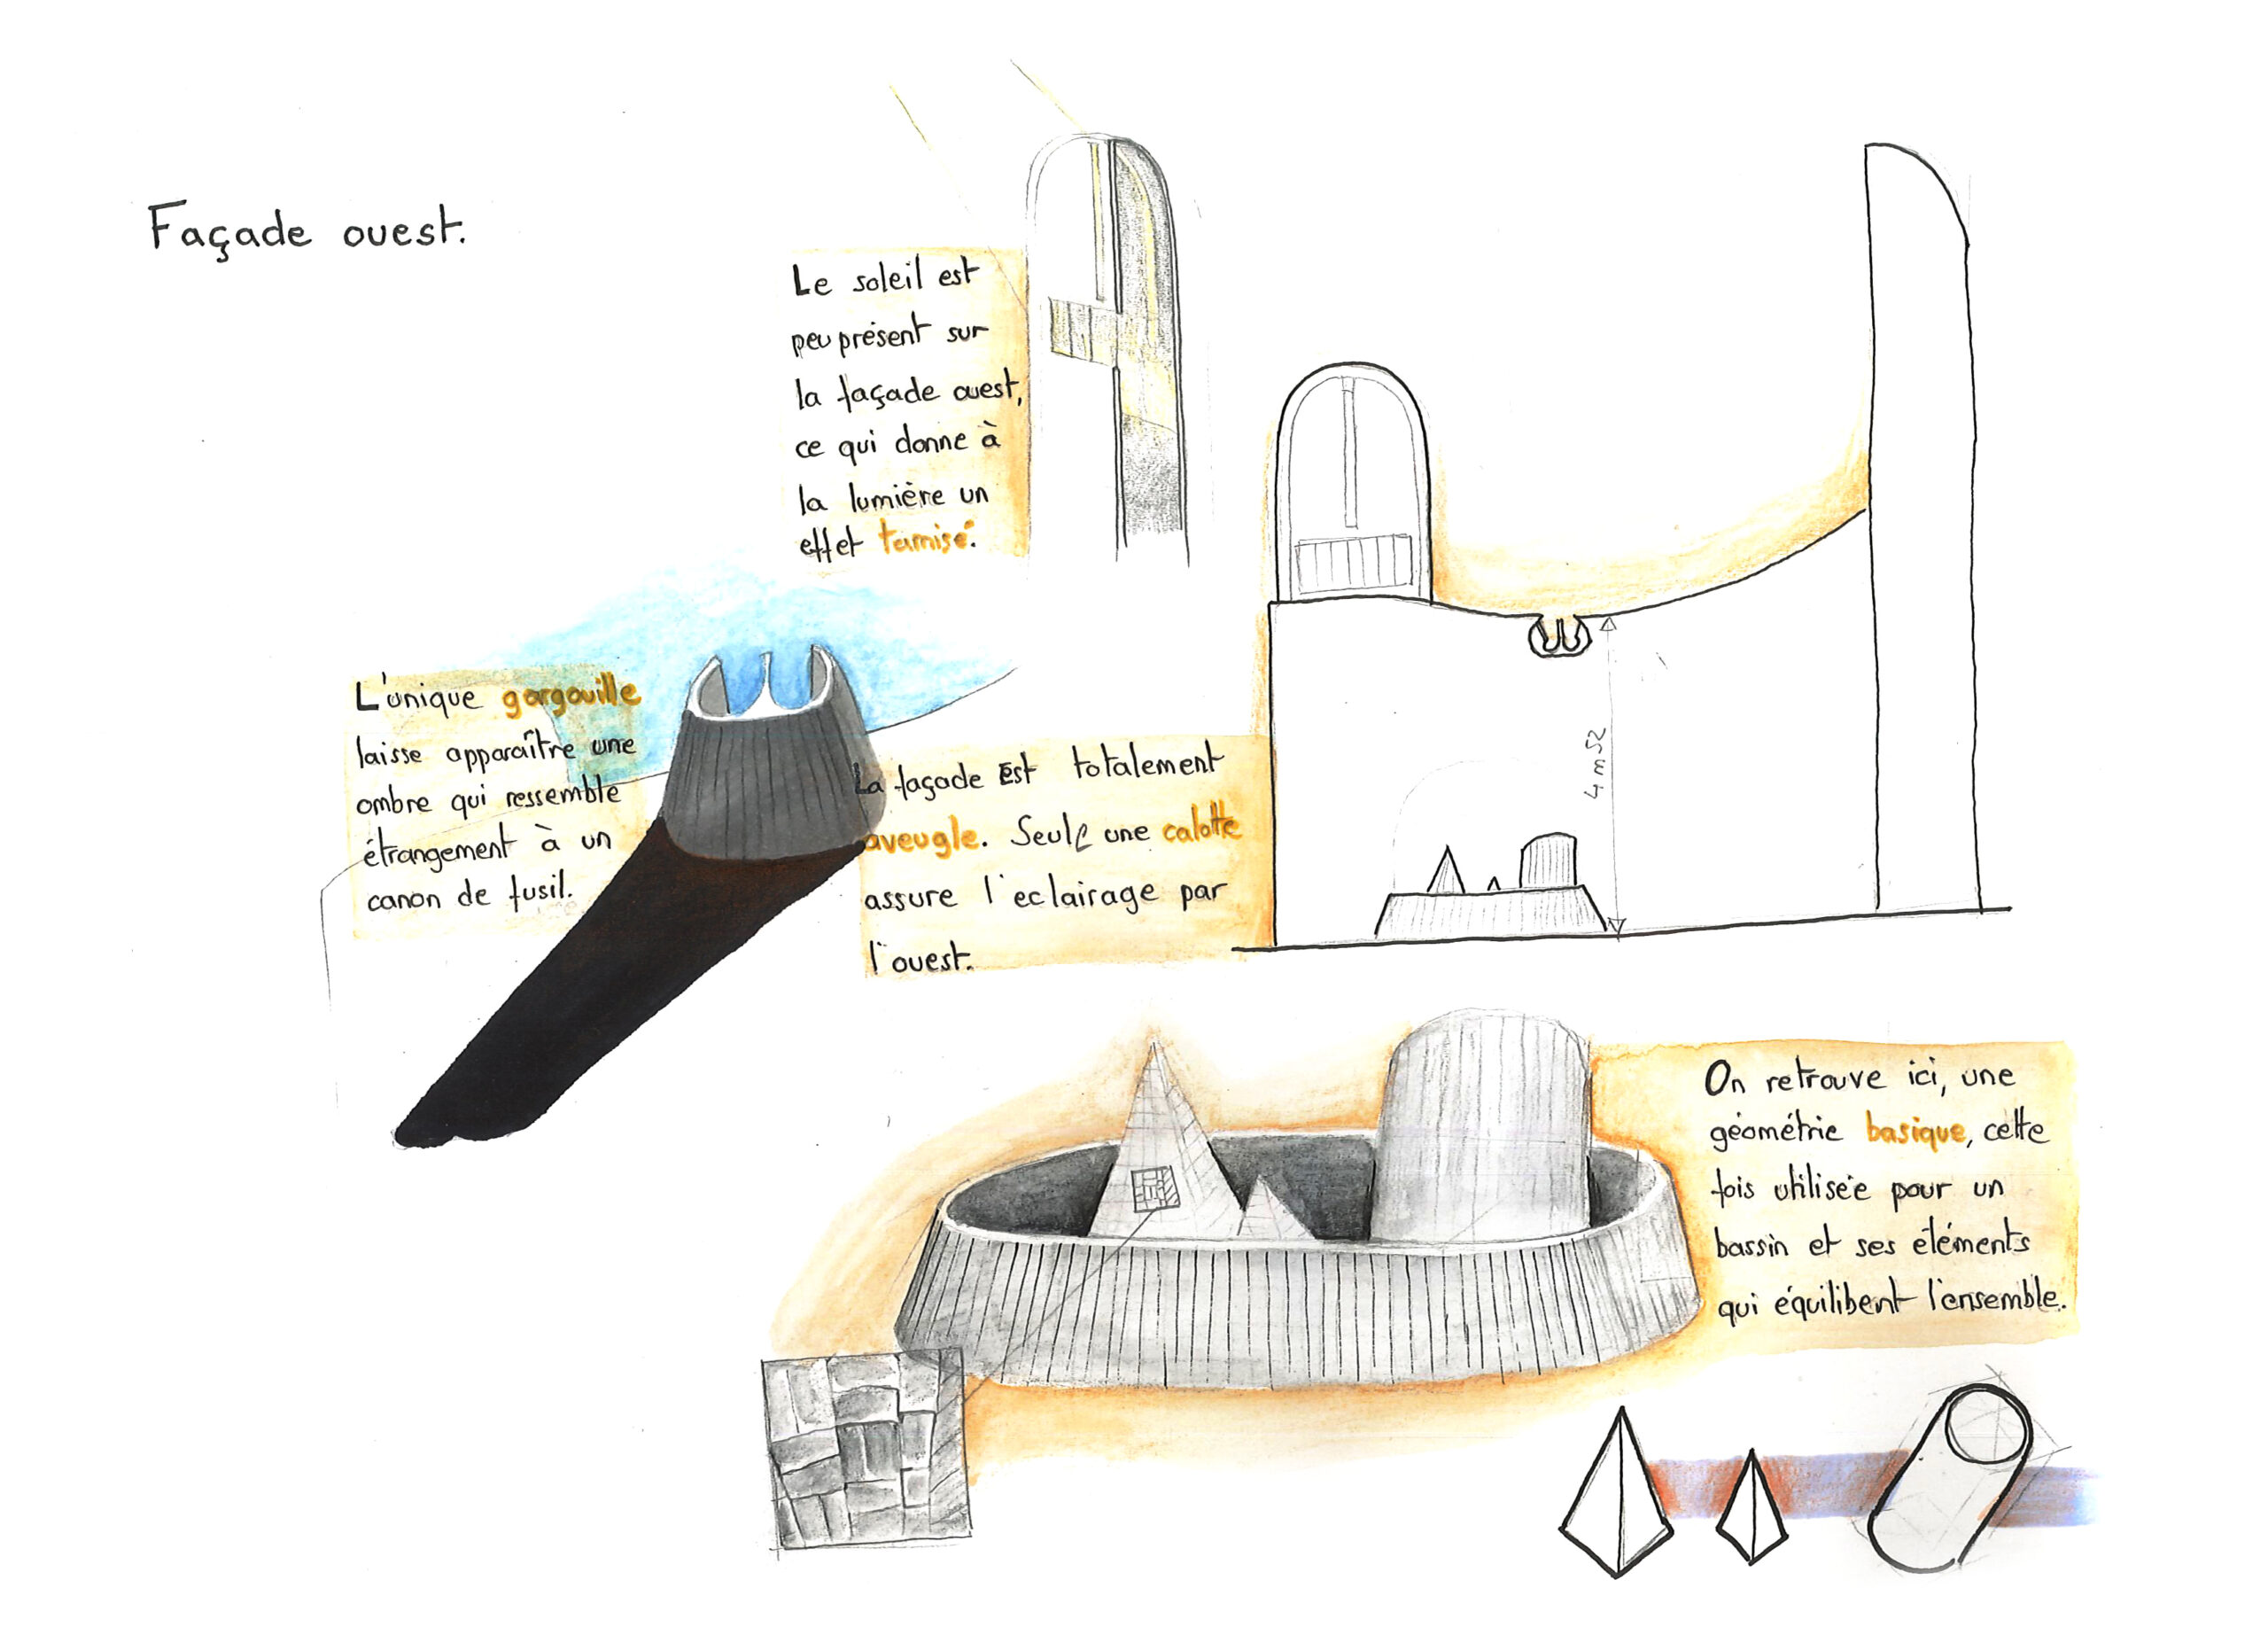 Façade ouest.
Le soleil est
peu présent sur
la façade ouest,
ce qui donne à
la lumière un
effet tamisé.
L'unique gargouille
laisse apparaître une
ombre qui ressemble
étrangement à un
canon de fusil.
La façade Est totalement
aveugle. Seule une calotte
assure l'eclairage par
l'ouest.
4m52
On retrouve ici, une
géométrie basique, cette
fois utilisée pour un
bassin et ses éléments
qui équilibent l'ensemble.